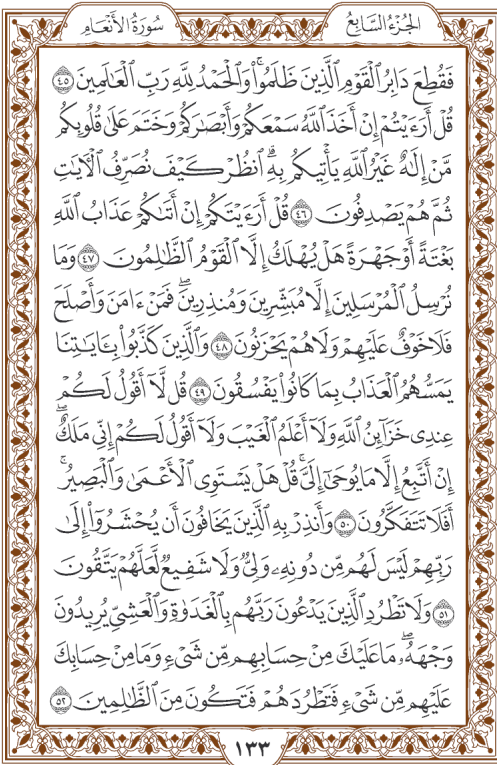 سُورَةُ الأَنْعَام
الجُزْءُ السَّابِعُ
فَقُطِعَ دَابِرُ ٱلْقَوْمِ ٱلَّذِينَ ظَلَمُوا۟ۚ وَٱلْحَمْدُ لِلَّهِ رَبِّ ٱلْعَـٰلَمِينَ ٤٥
قُلْ أَرَءَيْتُمْ إِنْ أَخَذَ ٱللَّهُ سَمْعَكُمْ وَأَبْصَـٰرَكُمْ وَخَتَمَ عَلَىٰ قُلُوبِكُم
مَّنْ إِلَـٰهٌ غَيْرُ ٱللَّهِ يَأْتِيكُم بِهِۗ ٱنظُرْ كَيْفَ نُصَرِّفُ ٱلْـَٔايَـٰتِ
ثُمَّ هُمْ يَصْدِفُونَ ٤٦ قُلْ أَرَءَيْتَكُمْ إِنْ أَتَىٰكُمْ عَذَابُ ٱللَّهِ
بَغْتَةً أَوْ جَهْرَةً هَلْ يُهْلَكُ إِلَّا ٱلْقَوْمُ ٱلظَّـٰلِمُونَ ٤٧ وَمَا
نُرْسِلُ ٱلْمُرْسَلِينَ إِلَّا مُبَشِّرِينَ وَمُنذِرِينَۖ فَمَنْ ءَامَنَ وَأَصْلَحَ
فَلَا خَوْفٌ عَلَيْهِمْ وَلَا هُمْ يَحْزَنُونَ ٤٨ وَٱلَّذِينَ كَذَّبُوا۟ بِـَٔايَـٰتِنَا
يَمَسُّهُمُ ٱلْعَذَابُ بِمَا كَانُوا۟ يَفْسُقُونَ ٤٩ قُل لَّآ أَقُولُ لَكُمْ
عِندِى خَزَآئِنُ ٱللَّهِ وَلَآ أَعْلَمُ ٱلْغَيْبَ وَلَآ أَقُولُ لَكُمْ إِنِّى مَلَكٌۖ
إِنْ أَتَّبِعُ إِلَّا مَا يُوحَىٰٓ إِلَىَّۚ قُلْ هَلْ يَسْتَوِى ٱلْأَعْمَىٰ وَٱلْبَصِيرُۚ
أَفَلَا تَتَفَكَّرُونَ ٥٠ وَأَنذِرْ بِهِ ٱلَّذِينَ يَخَافُونَ أَن يُحْشَرُوٓا۟ إِلَىٰ
رَبِّهِمْ لَيْسَ لَهُم مِّن دُونِهِۦ وَلِىٌّ وَلَا شَفِيعٌ لَّعَلَّهُمْ يَتَّقُونَ
٥١ وَلَا تَطْرُدِ ٱلَّذِينَ يَدْعُونَ رَبَّهُم بِٱلْغَدَوٰةِ وَٱلْعَشِىِّ يُرِيدُونَ
وَجْهَهُۥۖ مَا عَلَيْكَ مِنْ حِسَابِهِم مِّن شَىْءٍ وَمَا مِنْ حِسَابِكَ
عَلَيْهِم مِّن شَىْءٍ فَتَطْرُدَهُمْ فَتَكُونَ مِنَ ٱلظَّـٰلِمِينَ ٥٢
١٣٣